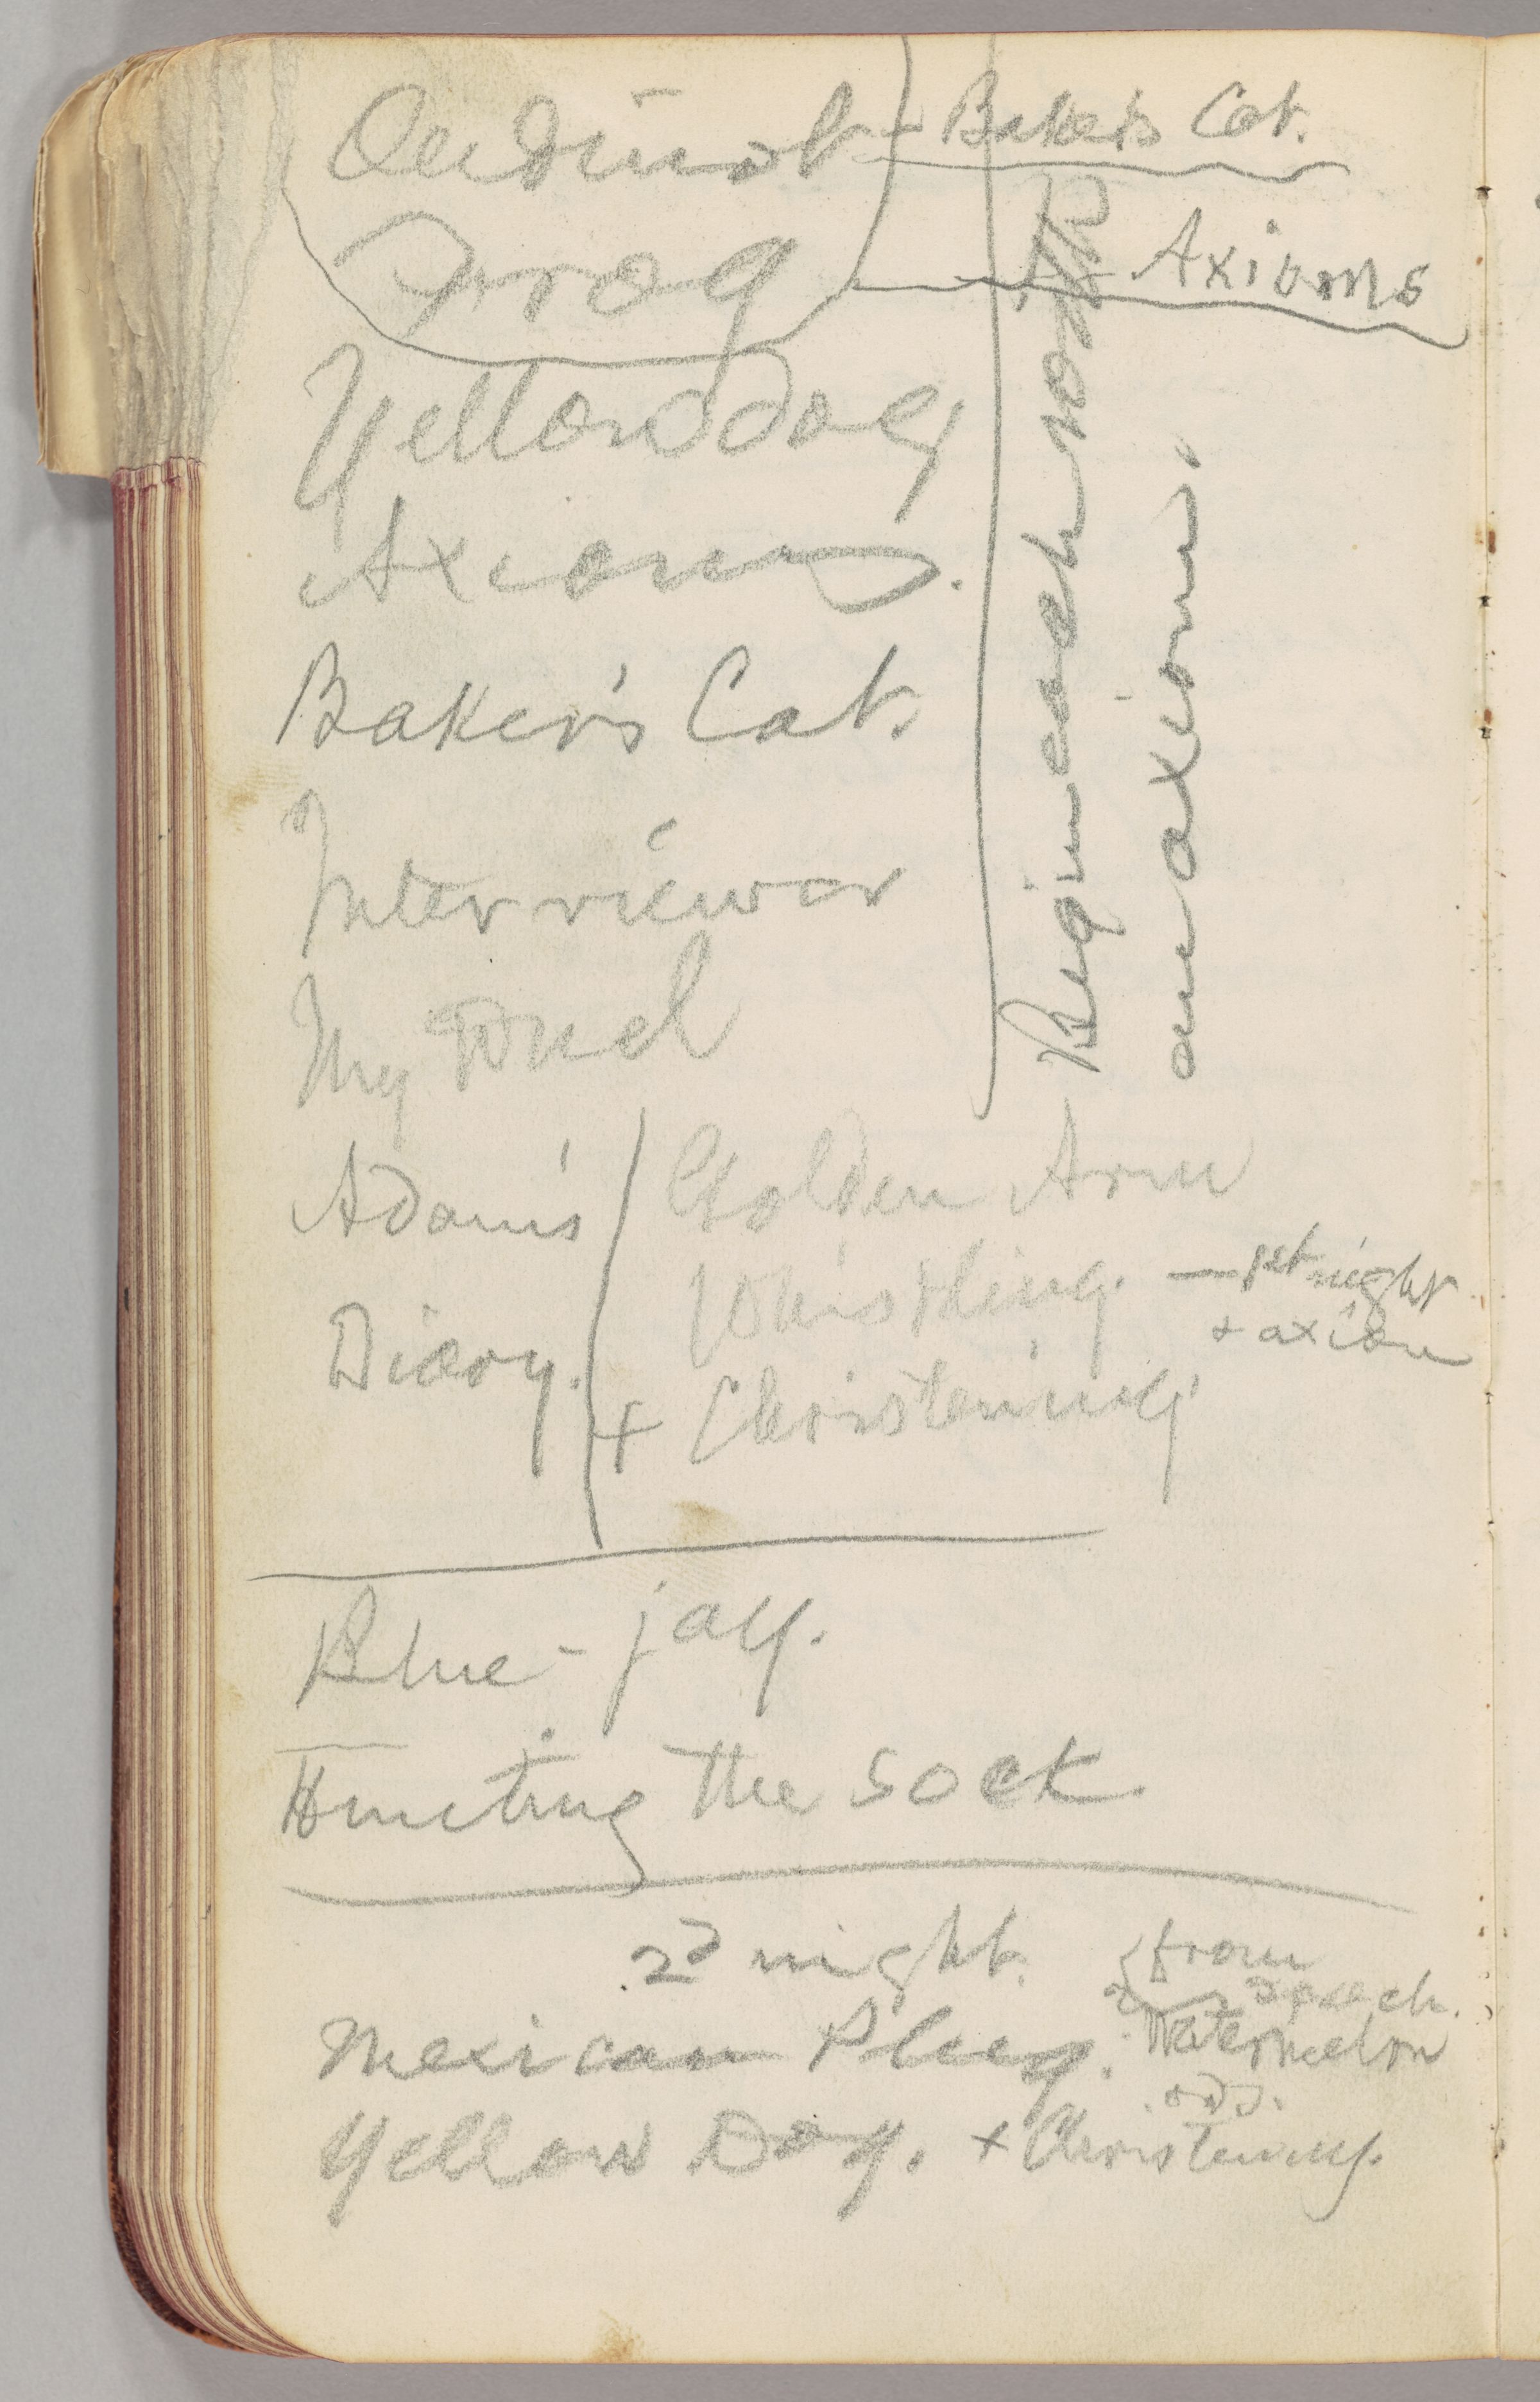 Oudinot — Baker's Cat.
Frog — Axioms
Yellow dog
Axioms.
Baker's Cat.
Interviewer
My Duel
Begin each with
an axiom.
Adam's
Diary.
Golden Arm
Whistling. — 1st night
+ axiom
+ Christening
Blue-jay.
Hunting the sock.
2d night.
Mexican Plug.
{ from
speech.
Watermelon
Yellow Dog. + Christening.